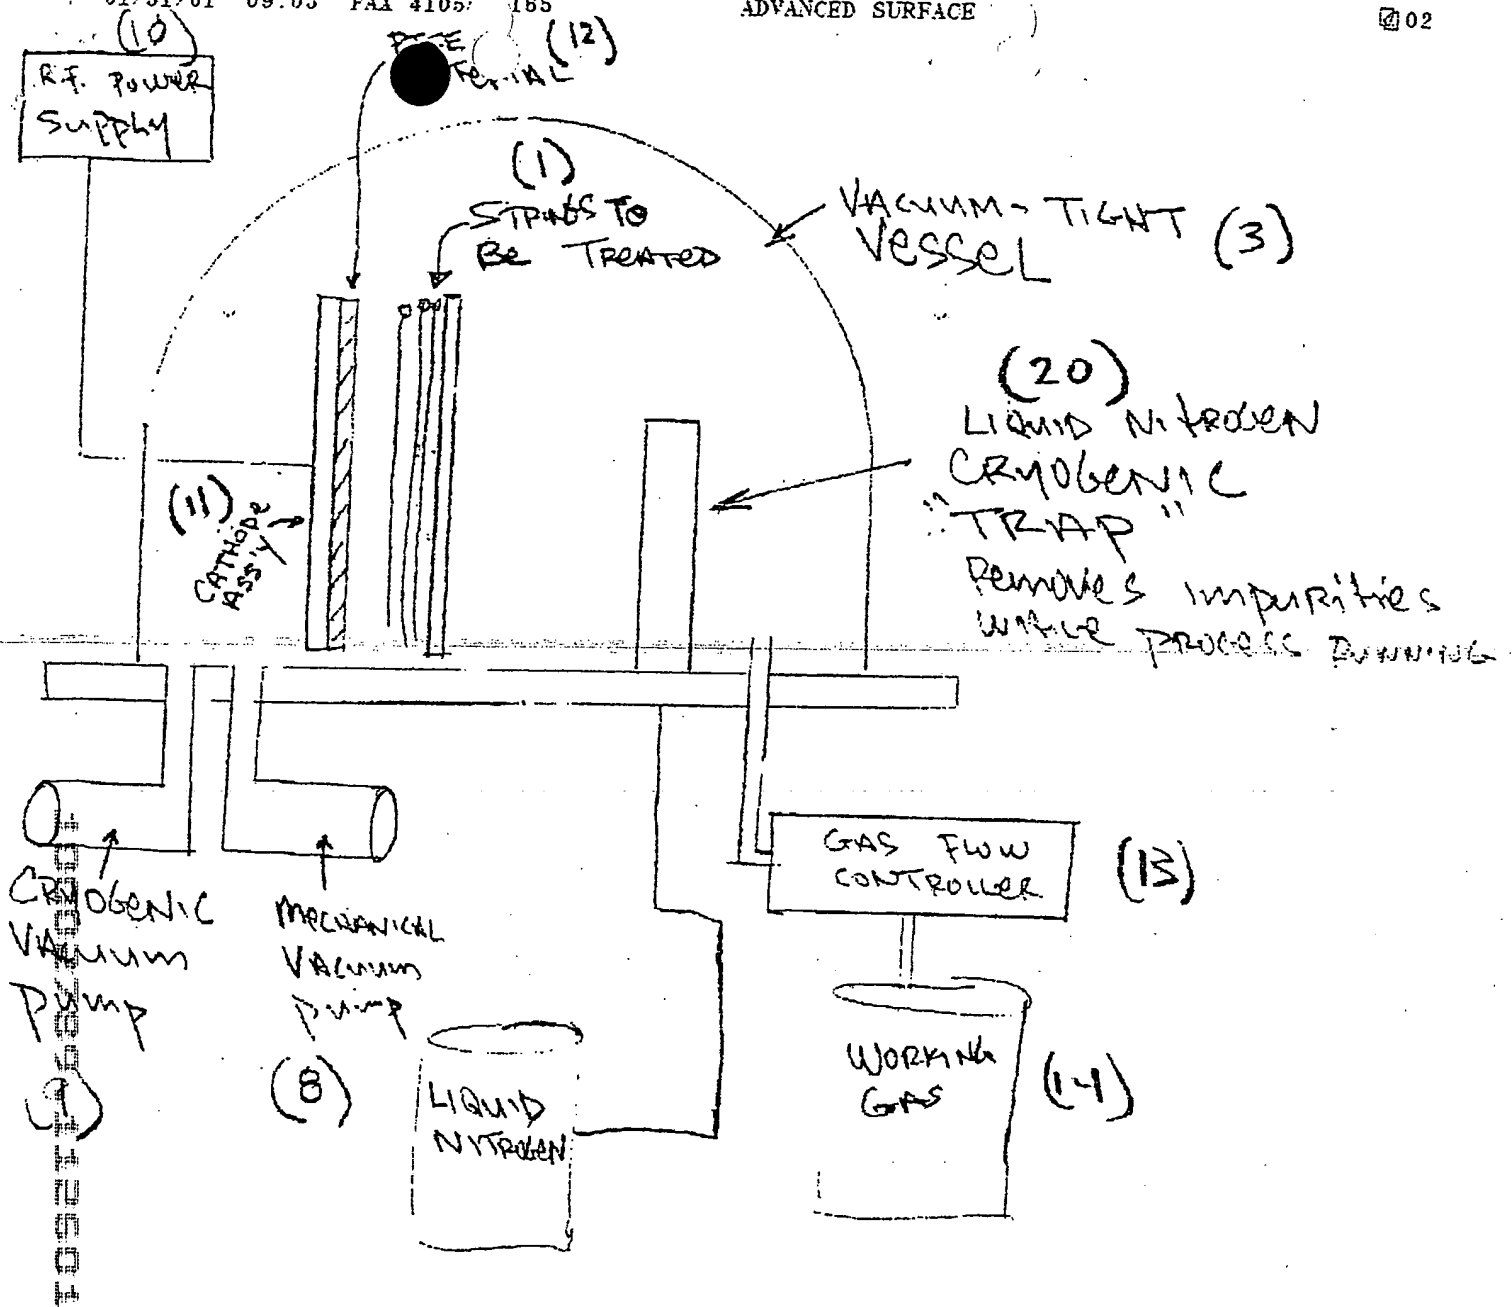 01/31/01 09:03 FAX 4105 165 ADVANCED SURFACE 02
(10)
R.F. POWER
SUPPLY
(12)
(1)
STRINGS TO
BE TREATED
VACUUM-TIGHT
VESSEL
(3)
(20)
LIQUID NITROGEN
CRYOGENIC
"TRAP"
REMOVES IMPURITIES
WHILE PROCESS RUNNING
(11)
CATHODE
ASS'Y
GAS FLOW
CONTROLLER
(13)
CRYOGENIC
VACUUM
PUMP
(9)
MECHANICAL
VACUUM
PUMP
(8)
LIQUID
NITROGEN
WORKING
GAS
(14)